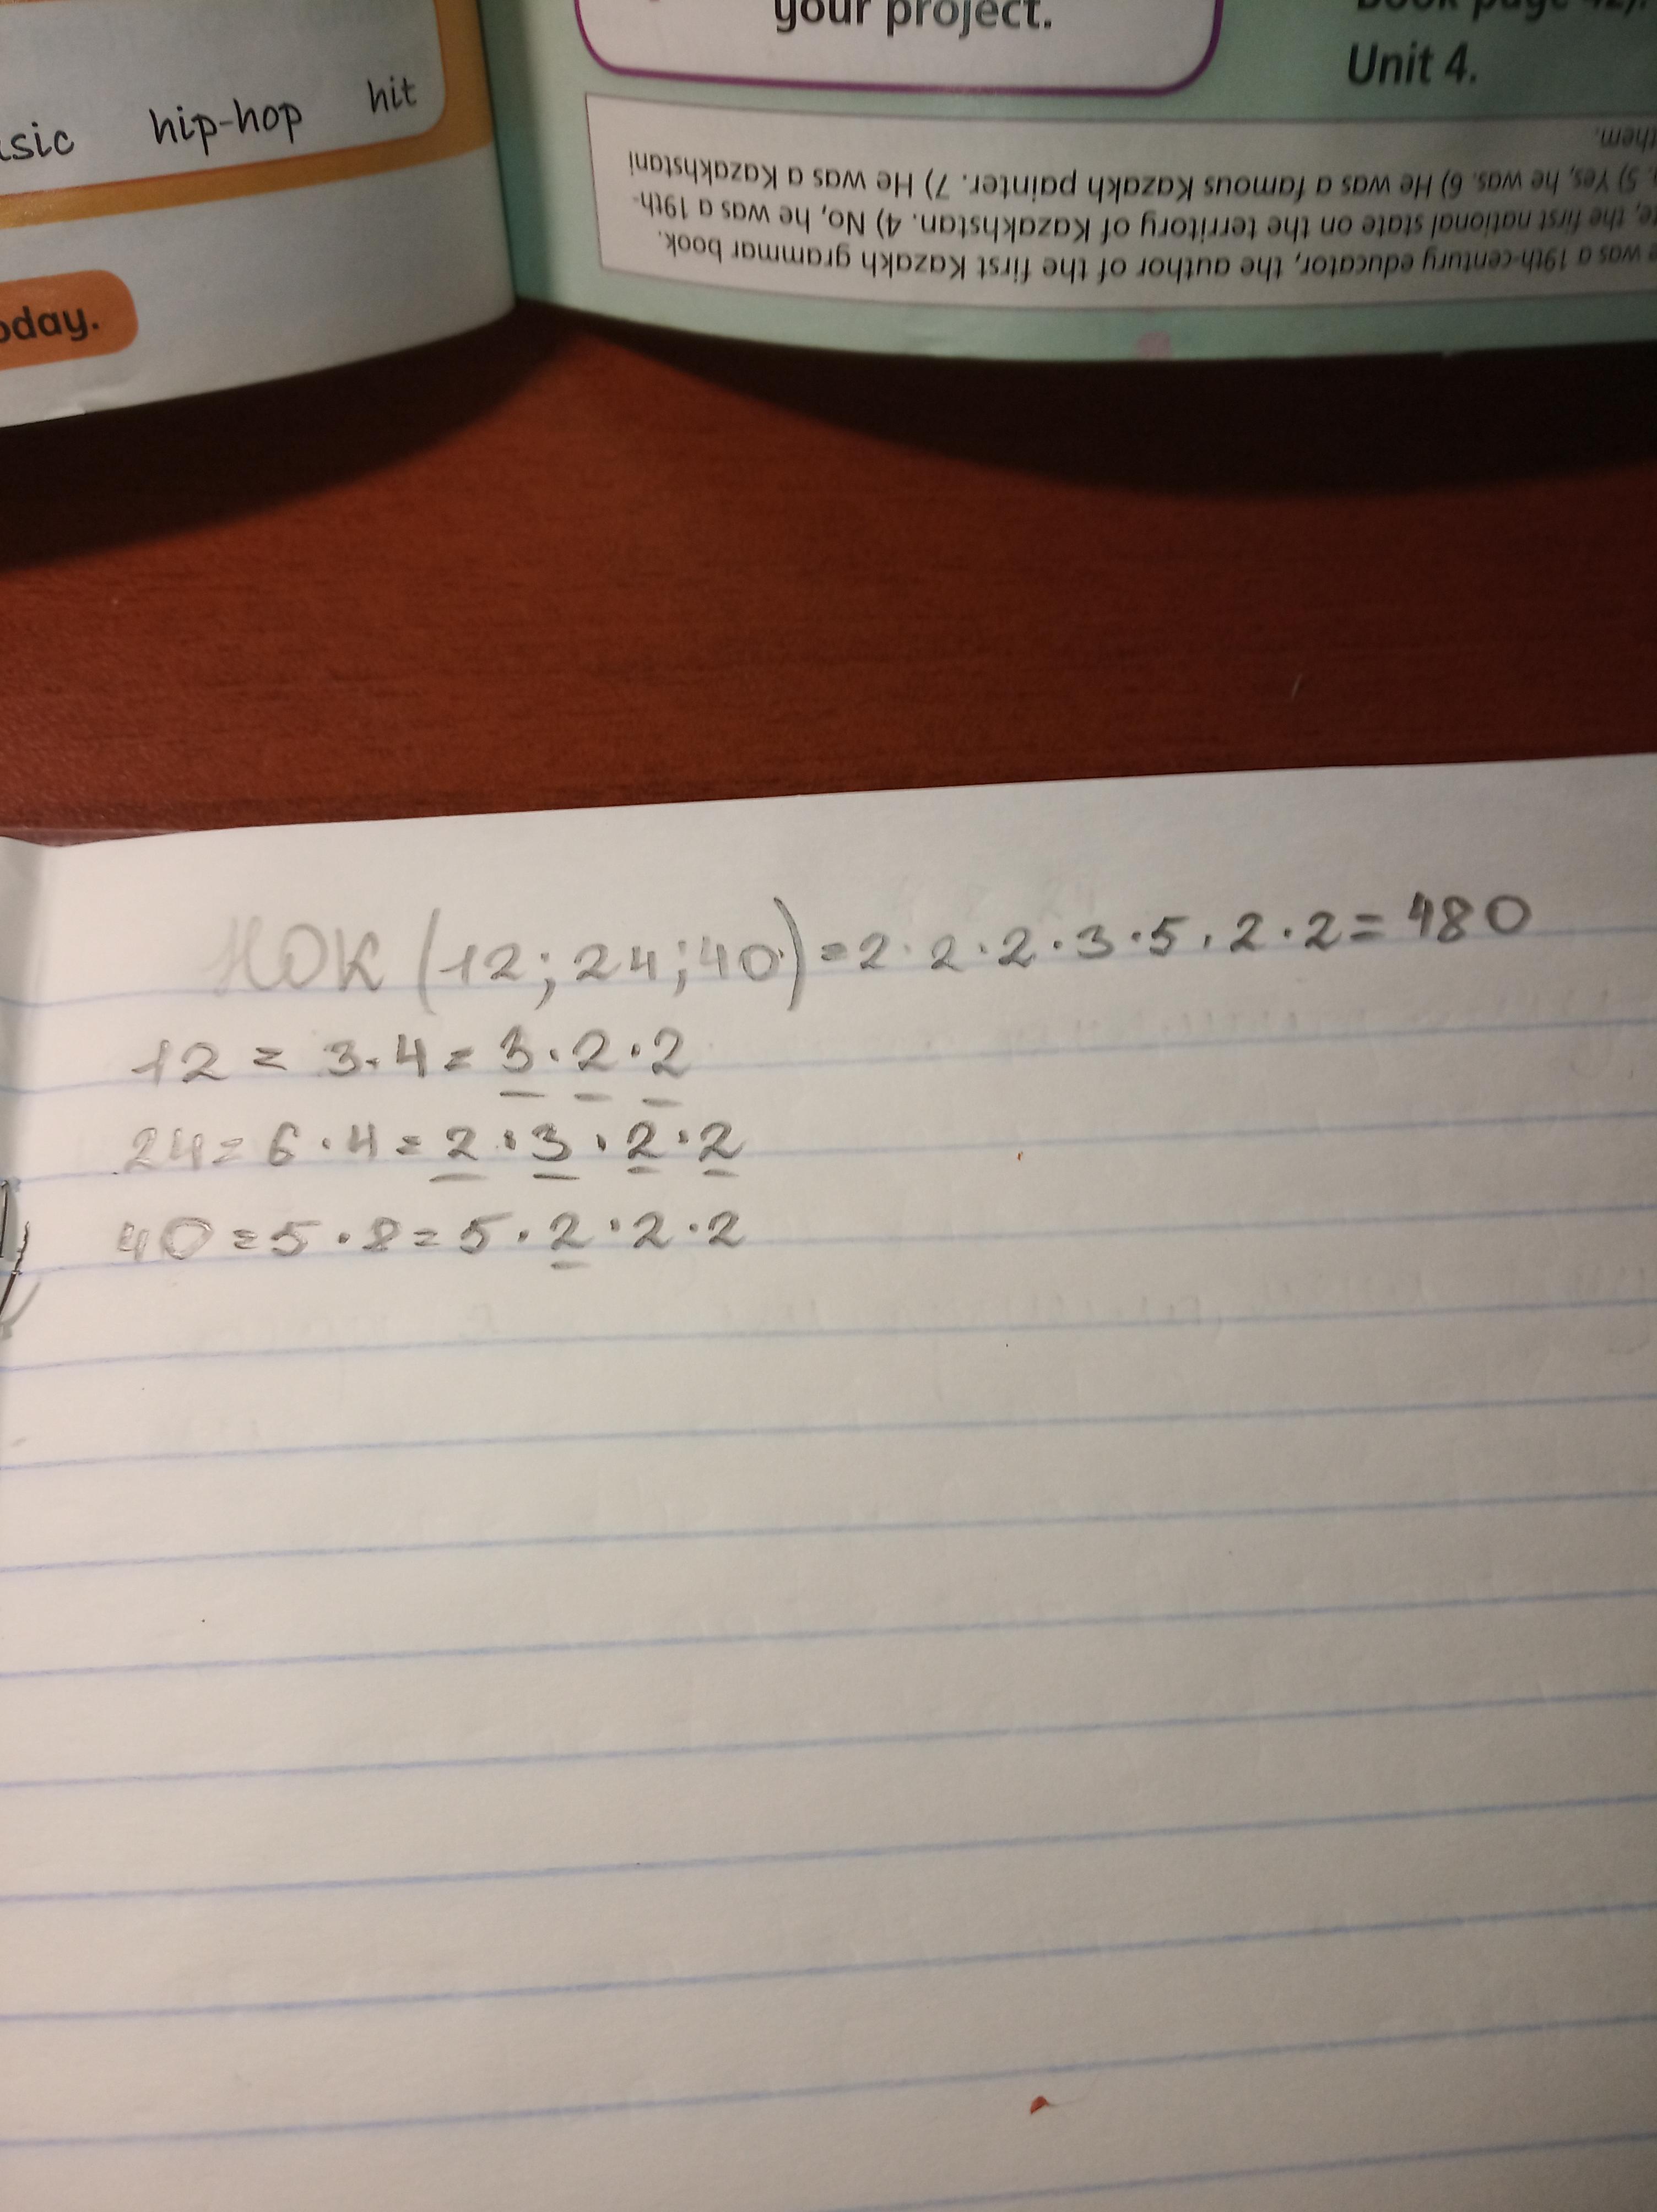 hip-hop
hit
your project.
Unit 4.
them.
5) Yes, he was. 6) He was a famous Kazakh painter. 7) He was a Kazakhstani
the first national state on the territory of Kazakhstan. 4) No, he was a 19th-
was a 19th-century educator, the author of the first Kazakh grammar book.
НОК (12; 24; 40) = 2 · 2 · 2 · 3 · 5 · 2 · 2 = 480
12 = 3 · 4 = 3 · 2 · 2
24 = 6 · 4 = 2 · 3 · 2 · 2
40 = 5 · 8 = 5 · 2 · 2 · 2